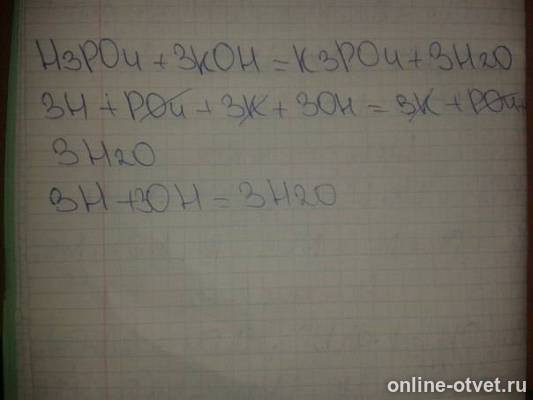 H3PO4 + 3KOH = K3PO4 + 3H2O
3H + PO4 + 3K + 3OH = 3K + PO4 +
3H2O
3H + 3OH = 3H2O
online-otvet.ru